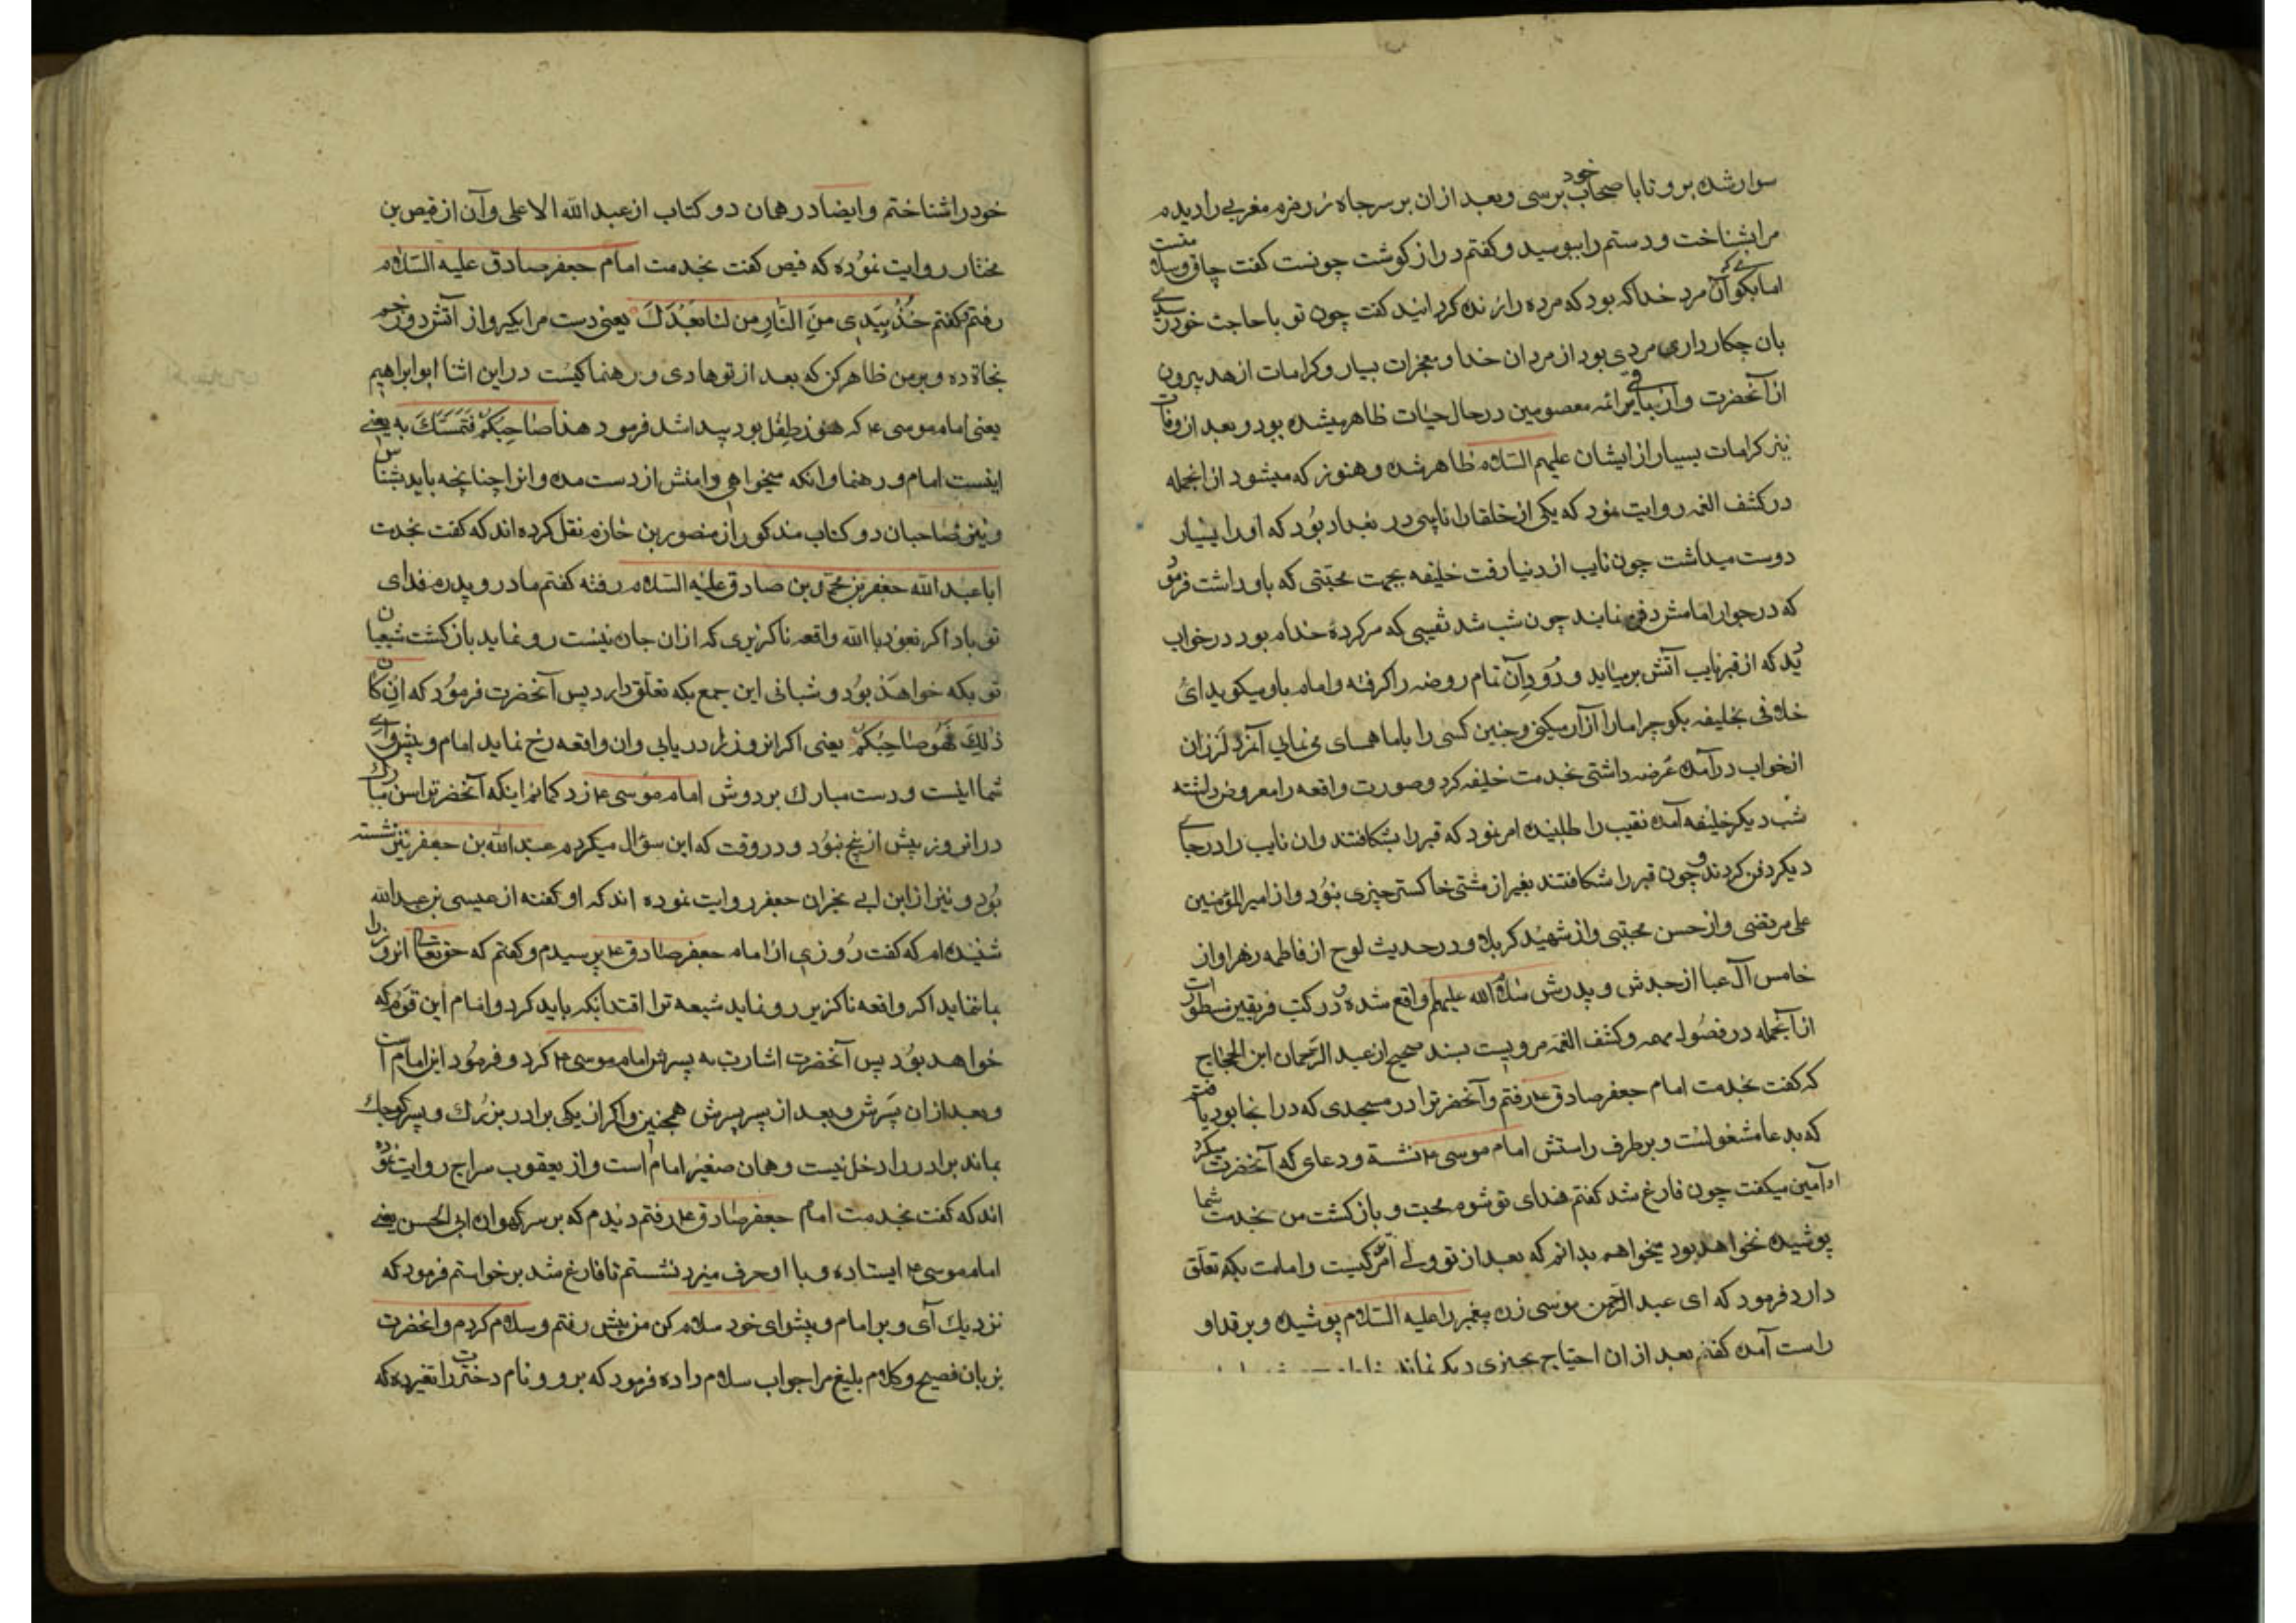 سوار شده برو تا با صحاب خود برسی و بعد از ان بر سر چاه زفرم مغربی را دیدم
مرا بشناخت و دستم را ببوسید و کفتم دراز کوشت چونست کفت چاق و سلامت
اما بکوی که آن مرد خدا که بود که مرده را زنده کردانید کفت چون تو با حاجت خود رسیدی
بان چکار داری مردی بود از مردان خدا و معجزات بسیار و کرامات از حد بیرون
از آنحضرت و از باقی ائمه معصومین در حال حیات ظاهر میشده بود و بعد از وفات
نیز کرامات بسیار از ایشان علیهم السلام ظاهر شده و هنوز که میشود از انجمله
در کشف الغمه روایت نمود که یکی از خلفا را نایبی در بغداد بود که او را بسیار
دوست میداشت چون نایب از دنیا رفت خلیفه بجهت محبتی که باو داشت فرمود
که در جوار امامش دفن نمایند چون شب شد نقیبی که سرکردهٔ خدام بود در خواب
دید که از قبر نایب آتش برمیاید و دود آن تمام روضه را کرفته و امام باو میکوید ای
فلانی بخلیفه بکو چرا ما را آزار میکنی و چنین کسی را با ما همسای می نمایی آنمرد لرزان
از خواب در آمده عرضه داشتی بخدمت خلیفه کرد و صورت واقعه را معروض داشته
شب دیکر خلیفه آمده نقیب را طلبیده امر نمود که قبر را بشکافتند وان نایب را در جای
دیکر دفن کردند و چون قبر را شکافتند بغیر از مشتی خاکستر چیزی نبود و از امیر المؤمنین
علی مرتضی و از حسن مجتبی و از شهید کربلا و در حدیث لوح از فاطمه زهرا و از
خامس آل عبا از جدش و پدرش سلام الله علیهم واقع شده و در کتب فریقین مسطور است
از آنجمله در فصول مهمه و کشف الغمه مرویست بسند صحیح از عبد الرحمان ابن الحجاج
که کفت بخدمت امام جعفر صادق ع رفتم و آنحضرترا در مسجدی که در انجا بود یافتم
که بدعا مشغولست و بر طرف راستش امام موسی ع نشسته و دعای که آنحضرت میکرد
او آمین میکفت چون فارغ شد کفتم فدای تو شوم محبت و بازکشت من بخدمت شما
پوشیده نخواهد بود میخواهم بدانم که بعد از تو ولی امر کیست و امامت بکه تعلق
دارد فرمود که ای عبد الرحمن موسی زره پیغمبر را علیه السلام پوشیده و بر قد او
راست آمده کفتم بعد از ان احتیاج بچیزی دیکر نماند
خود را شناختم و ایضا در همان دو کتاب از عبد الله الاعلی و آن از فیض بن
مختار روایت نموده که فیض کفت بخدمت امام جعفر صادق علیه السلام
رفتم و کفتم خُذْ بِیَدِی مِنَ النَّارِ مِن لنا بَعْدَكَ یعنی دست مرا بکیر و از آتش دوزخم
نجاة ده و بر من ظاهر کن که بعد از تو هادی و رهنما کیست در این اثنا ابو ابراهیم
یعنی امام موسی ع که هنوز طفل بود پیدا شد فرمود هذا صَاحِبَكُمْ فَتَمَسَّكَ بِه یعنی
اینست امام و رهنما و انکه میخواهی دامنش از دست مده و انرا چنانچه باید بشناس
و نیز صاحبان دو کتاب مذکور از منصور بن خازم نقل کرده اند که کفت بخدمت
ابا عبد الله جعفر بن محمد بن صادق علیه السلام رفته کفتم مادر و پدرم فدای
تو باد اکر نعوذ باالله واقعه ناکزیری که از ان جان نیست رو نماید بازکشت شیعیان
تو بکه خواهد بود و شبانی این جمع بکه تعلق دارد پس آنحضرت فرمود که ان کان
ذلِكَ فَهُوَ صَاحِبُكُمْ یعنی اکر انروز را دریابی وان واقعه رخ نماید امام و پیشوای
شما اینست و دست مبارك بر دوش امام موسی ع زد کمانم اینکه آنحضرترا سن مبارك
در انروز بیش از پنج نبود و در وقت که این سؤال میکردم عبد الله بن جعفر نیز نشسته
بود و نیز از ابن ابی نجران جعفر روایت نموده اند که او کفته از عیسی بن عبد الله
شنیده ام که کفت روزی از امام جعفر صادق ع پرسیدم و کفتم که حق تعالی انروز را
بما ننماید اکر واقعه ناکزیر رو نماید شیعه ترا اقتدا بکه باید کرد و امام این قوم که
خواهد بود پس آنحضرت اشارت به پسرش امام موسی ع کرد و فرمود این امام است
و بعد از ان پسرش و بعد از پسر پسرش همچنین و اکر از یکی برادر بزرك و پسر کوچك
بماند برادر را دخل نیست و همان صغیر امام است و از یعقوب سراج روایت نموده
اند که کفت بخدمت امام جعفر صادق ع رفتم دیدم که بر سر کهواره ابی الحسن یعنی
امام موسی ع ایستاده و با او حرف میزد نشستم تا فارغ شد برخواستم فرمود که
نزدیك آی و بر امام و پیشوای خود سلام کن من پیش رفتم و سلام کردم و انحضرت
بزبان فصیح و کلام بلیغ مرا جواب سلام داده فرمود که برو و نام دخترت را تغیر ده که